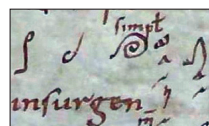 simpł
insurgen